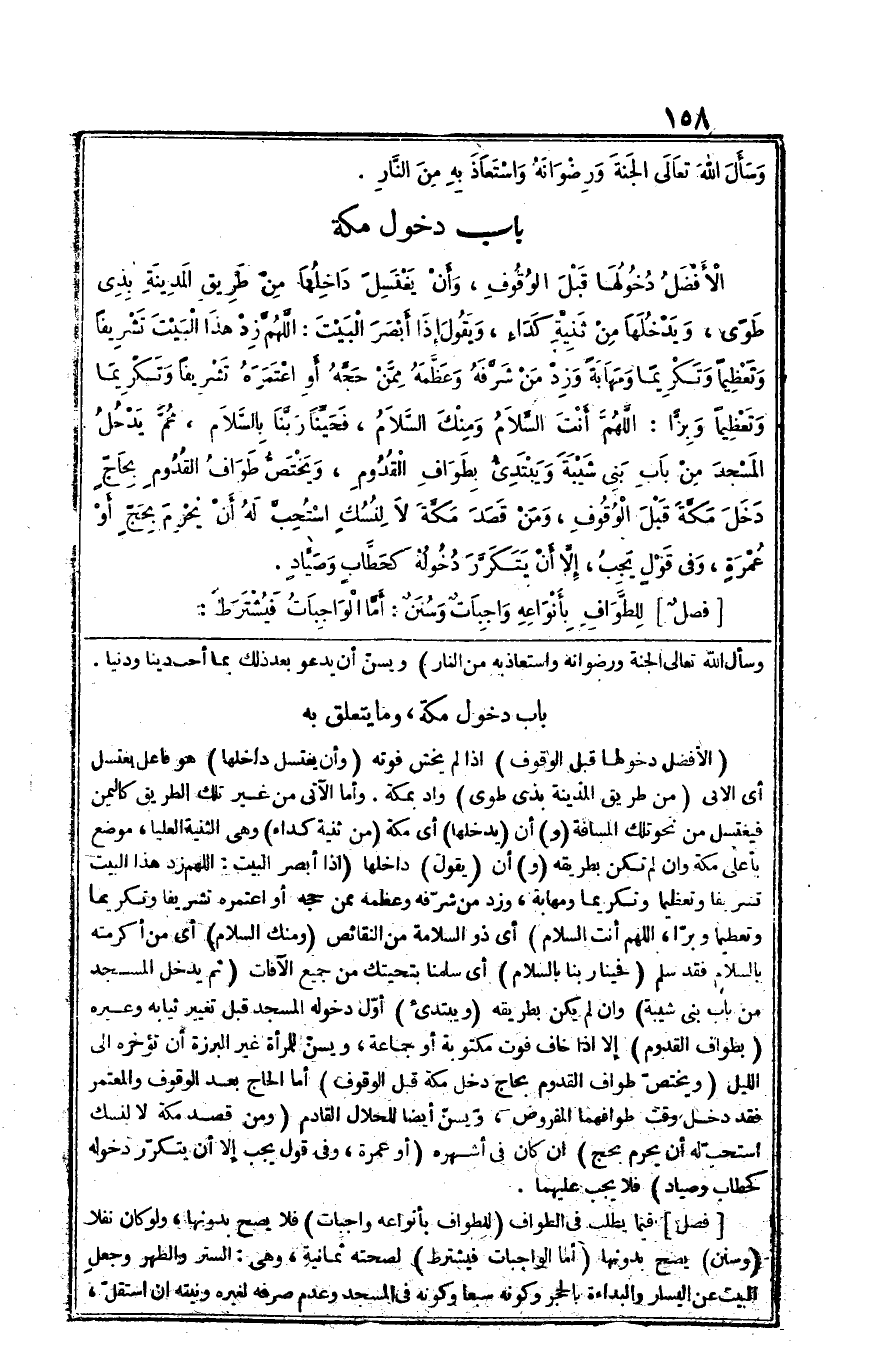 ١٥٨
وَسَأَلَ اللّٰهَ تعَالَى الجَنَّةَ وَرِضْوَانَهُ وَاسْتَعَاذَ بِهِ مِنَ النَّارِ .
باب دخول مكة
الْأَفْضَلُ دُخُولُهَا قَبْلَ الوُقُوفِ ، وَأَنْ يَغْتَسِلَ دَاخِلُهَا مِنْ طَرِيقِ المَدِينَةِ بِذِى
طَوًى ، وَيَدْخُلَهَا مِنْ ثَنِيَّةِ كَدَاءٍ ، وَيَقُولَ إِذَا أَبْصَرَ الْبَيْتَ : اللَّهُمَّ زِدْ هذَا الْبَيْتَ تَشْرِيفًا
وَتَعْظِيمًا وَتَكْرِيمًا وَمَهَابَةً وَزِدْ مَنْ شَرَّفَهُ وَعَظَّمَهُ مِمَّنْ حَجَّهُ أَوِ اعْتَمَرَهُ تَشْرِيفًا وَتَكْرِيمًا
وَتَعْظِيمًا وَبِرًّا : اللَّهُمَّ أَنْتَ السَّلَامُ وَمِنْكَ السَّلَامُ ، فَحَيِّنَا رَبَّنَا بِالسَّلَامِ ، ثُمَّ يَدْخُلُ
المَسْجِدَ مِنْ بَابِ بَنِى شَيْبَةَ وَيَبْتَدِئُ بِطَوَافِ الْقُدُومِ ، وَيَخْتَصُّ طَوَافُ القُدُومِ بِحَاجٍّ
دَخَلَ مَكَّةَ قَبْلَ الْوُقُوفِ ، وَمَنْ قَصَدَ مَكَّةَ لَا لِنُسُكٍ اسْتُحِبَّ لَهُ أَنْ يُحْرِمَ بِحَجٍّ أَوْ
عُمْرَةٍ ، وَفى قَوْلٍ يَجِبُ ، إِلَّا أَنْ يَتَكَرَّرَ دُخُولُهُ كَحَطَّابٍ وَصَيَّادٍ .
[ فصلٌ ] لِلطَّوَافِ بِأَنْوَاعِهِ وَاجِبَاتٌ وَسُنَنٌ : أَمَّا الْوَاجِبَاتُ فَيُشْتَرَطُ :
وسأل الله تعالى الجنة ورضوانه واستعاذ به من النار ) ويسنّ أن يدعو بعد ذلك بما أحب دينا ودنيا .
باب دخول مكة ، وما يتعلق به
( الأفضل دخولها قبل الوقوف ) اذا لم يخش فوته ( وأن يغتسل داخلها ) هو فاعل يغتسل
أى الآتى ( من طريق المدينة بذى طوى ) واد بمكة . وأما الآتى من غير تلك الطريق كاليمن
فيغتسل من نحو تلك المسافة (و) أن (يدخلها) أى مكة (من ثنية كداء) وهى الثنية العليا ، موضع
بأعلى مكة وان لم تكن بطريقه (و) أن (يقول) داخلها (اذا أبصر البيت : اللهم زد هذا البيت
تشريفا وتعظيما وتكريما ومهابة ، وزد من شرّفه وعظمه ممن حجه أو اعتمره تشريفا وتكريما
وتعظيما وبرّا ، اللهم أنت السلام ) أى ذو السلامة من النقائص (ومنك السلام) أى من أكرمته
بالسلام فقد سلم ( فحينا ربنا بالسلام ) أى سلمنا بتحيتك من جميع الآفات ( ثم يدخل المسجد
من باب بنى شيبة) وان لم يكن بطريقه (ويبتدئ ) أوّل دخوله المسجد قبل تغيير ثيابه وغيره
( بطواف القدوم ) إلا اذا خاف فوت مكتوبة أو جماعة ، ويسنّ للمرأة غير البرزة أن تؤخره الى
الليل ( ويختصّ طواف القدوم بحاج دخل مكة قبل الوقوف ) أما الحاج بعد الوقوف والمعتمر
فقد دخل وقت طوافهما المفروض ، ويسنّ أيضا للحلال القادم ( ومن قصد مكة لا لنسك
استحبّ له أن يحرم بحج ) ان كان فى أشهره ( أو عمرة ، وفى قول يجب إلا أن يتكرّر دخوله
كحطاب وصياد ) فلا يجب عليهما .
[ فصل ] فيما يطلب فى الطواف (للطواف بأنواعه واجبات) فلا يصح بدونها ، ولو كان نفلا
(وسنن) يصح بدونها (أما الواجبات فيشترط) لصحته ثمانية ، وهى : الستر والطهر وجعل
البيت عن اليسار والبداءة بالحجر وكونه سبعا وكونه فى المسجد وعدم صرفه لغيره ونيته ان استقلّ ،